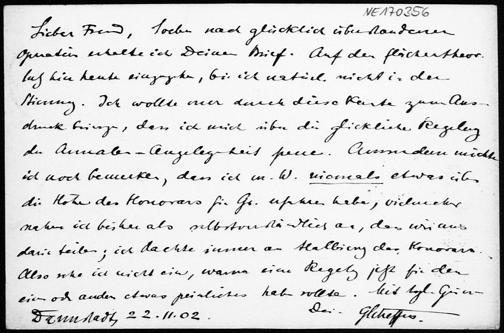 NE170356
Lieber Freund, Soeben nach glücklich überstandener
Operation erhalte ich Deinen Brief. Auf den
heute eingegangen, bin ich natürl. nicht in der
Stimmung. Ich wollte nur durch diese Karte zum Aus-
druck bringen, dass ich mich über die glückliche Regelung
der Annalen-Angelegenheit freue. Ausserdem möchte
ich noch bemerken, dass ich m. W. niemals etwas über
die Höhe des Honorars für Gr. erfahren habe, vielmehr
nahm ich bisher als selbstverständlich an, dass wir uns
darin teilen; ich dachte immer an Halbierung des Honorars.
Also sehe ich nicht ein, warum eine Regelung jetzt für den
einen oder anderen etwas peinliches haben sollte. Mit hzl. Gruss
Darmstadt, 22.11.02. Dein GScheffers.